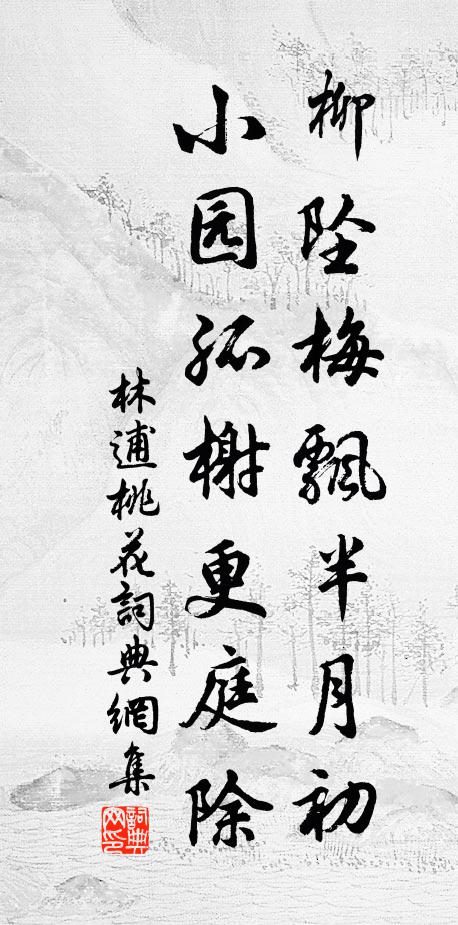 柳坠梅飘半月初
小园孤榭更庭除
林逋桃花詞典網集
詞典網印